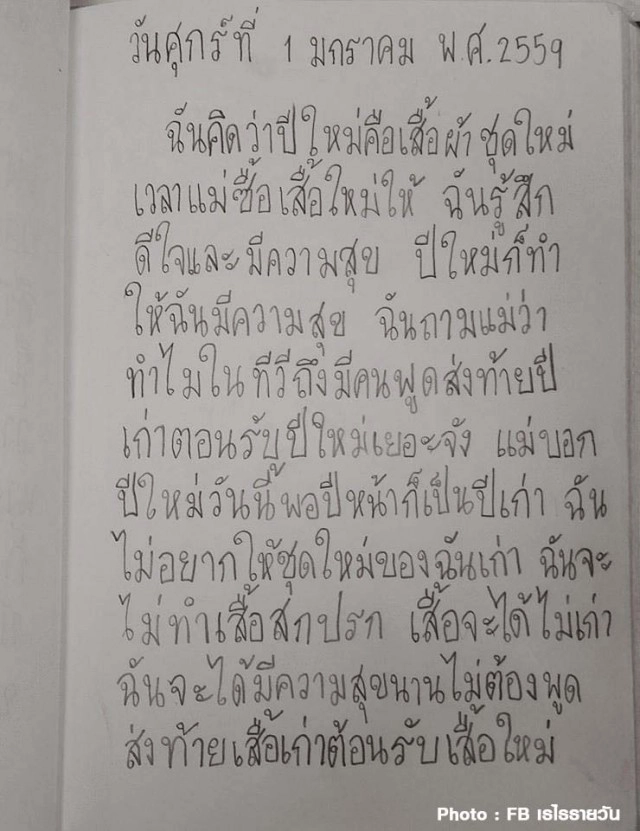 วันศุกร์ที่ 1 มกราคม พ.ศ.2559
ฉันคิดว่าปีใหม่คือเสื้อผ้าชุดใหม่
เวลาแม่ซื้อเสื้อใหม่ให้ ฉันรู้สึก
ดีใจและมีความสุข ปีใหม่ก็ทำ
ให้ฉันมีความสุข ฉันถามแม่ว่า
ทำไมในทีวีถึงมีคนพูดส่งท้ายปี
เก่าตอนรับปีใหม่เยอะจัง แม่บอก
ปีใหม่วันนี้พอปีหน้าก็เป็นปีเก่า ฉัน
ไม่อยากให้ชุดใหม่ของฉันเก่า ฉันจะ
ไม่ทำเสื้อสกปรก เสื้อจะได้ไม่เก่า
ฉันจะได้มีความสุขนานไม่ต้องพูด
ส่งท้ายเสื้อเก่าต้อนรับเสื้อใหม่
Photo : FB เรไรรายวัน